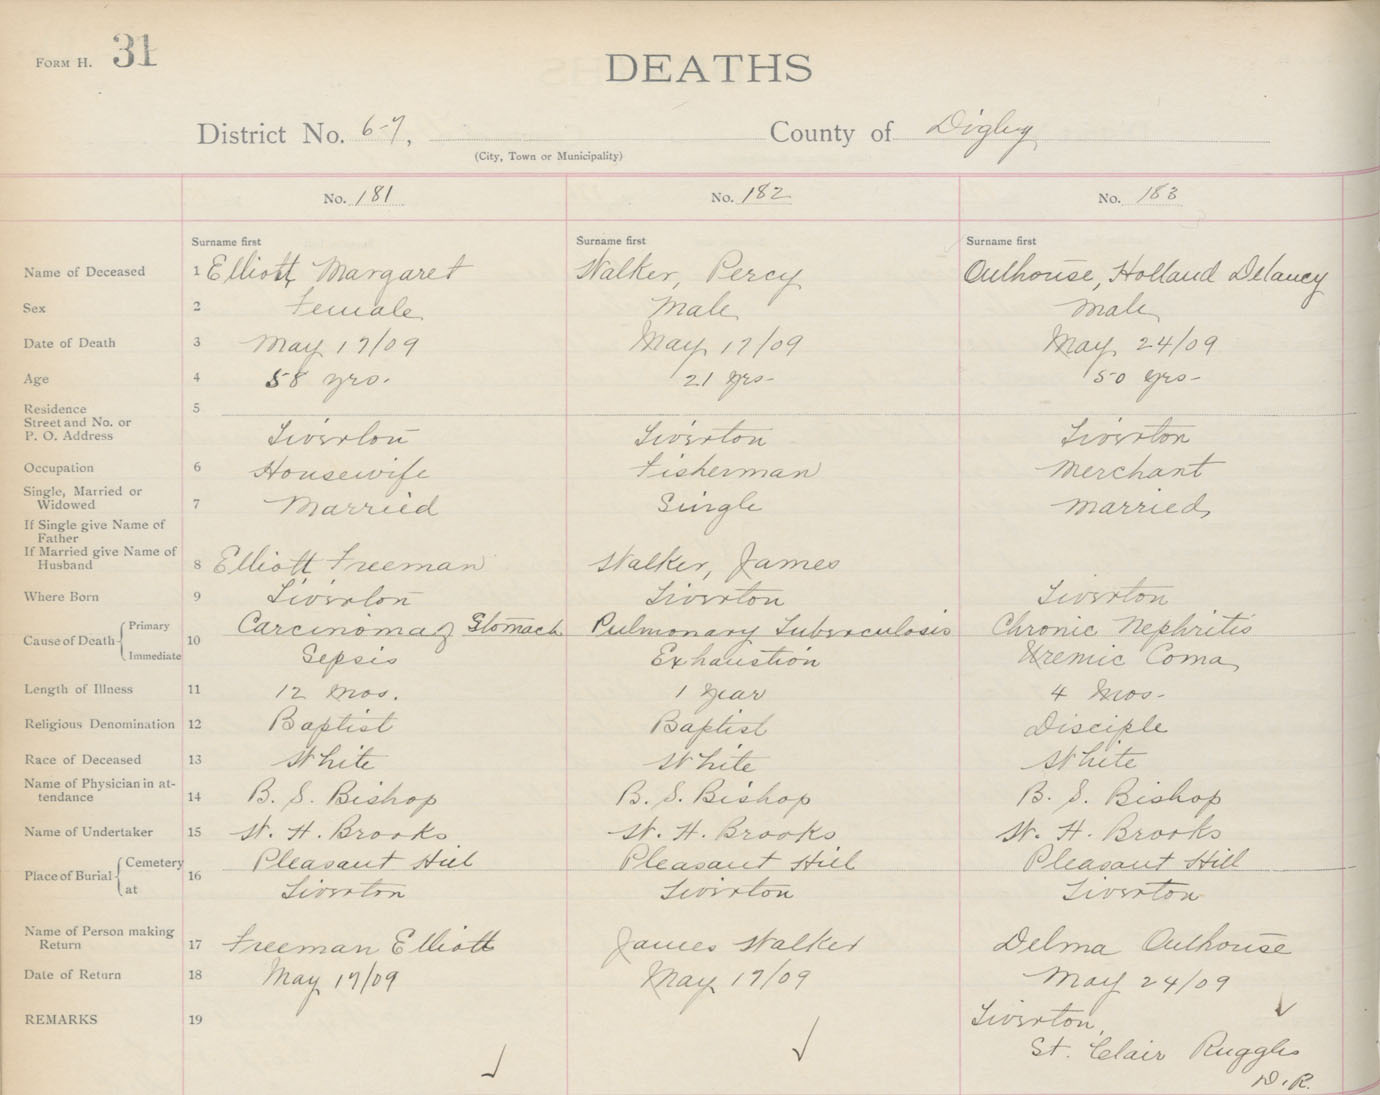 FORM H. 31
DEATHS
District No. 6-7, County of Digby
(City, Town or Municipality)
No. 181 No. 182 No. 183
Surname first Surname first Surname first
Name of Deceased 1 Elliott Margaret Walker, Percy Outhouse, Holland Delancy
Sex 2 Female Male Male
Date of Death 3 May 17/09 May 17/09 May 24/09
Age 4 58 yrs. 21 yrs. 50 yrs.
Residence 5
Street and No. or
P. O. Address Tiverton Tiverton Tiverton
Occupation 6 Housewife Fisherman Merchant
Single, Married or
Widowed 7 Married Single Married
If Single give Name of
Father
If Married give Name of
Husband 8 Elliott Freeman Walker, James
Where Born 9 Tiverton Tiverton Tiverton
Cause of Death Primary 10 Carcinoma of Stomach Pulmonary Tuberculosis Chronic Nephritis
Immediate Sepsis Exhaustion Uremic Coma
Length of Illness 11 12 mos. 1 year 4 mos.
Religious Denomination 12 Baptist Baptist Disciple
Race of Deceased 13 White White White
Name of Physician in at-
tendance 14 B. S. Bishop B. S. Bishop B. S. Bishop
Name of Undertaker 15 W. H. Brooks W. H. Brooks W. H. Brooks
Place of Burial Cemetery 16 Pleasant Hill Pleasant Hill Pleasant Hill
at Tiverton Tiverton Tiverton
Name of Person making
Return 17 Freeman Elliott James Walker Delma Outhouse
Date of Return 18 May 17/09 May 17/09 May 24/09
REMARKS 19 Tiverton,
St. Clair Ruggles
D. R.